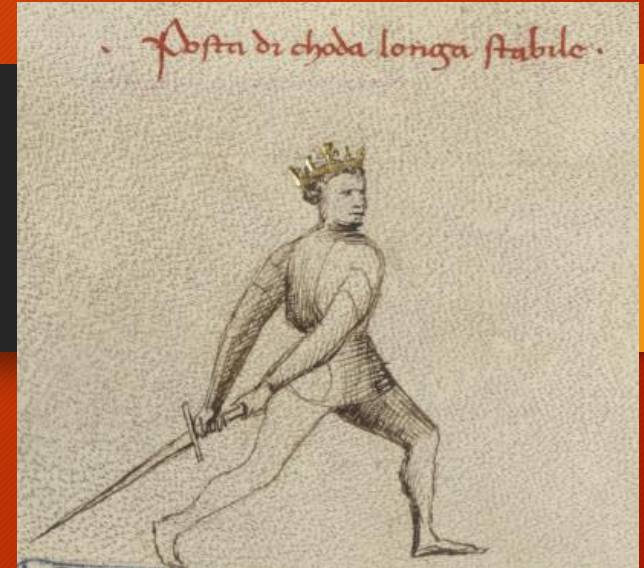 · Posta di choda longa stabile ·